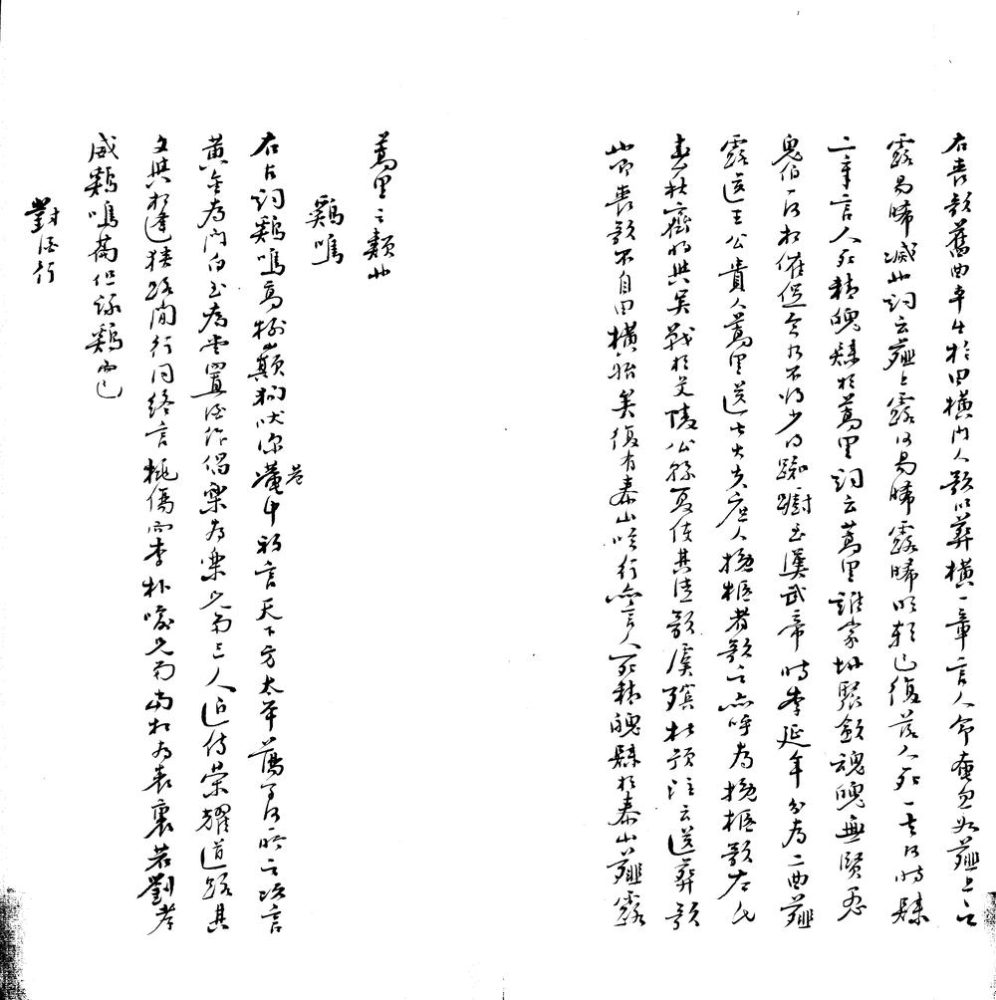 右喪歌舊曲本出於田橫門人歌以葬橫一章言人命奄忽如薤上之
露易晞滅也詞云薤上露何易晞露晞明朝已復落人死一去何時歸
二章言人死精魄歸於蒿里詞云蒿里誰家地聚斂魂魄無賢愚
鬼伯一何相催促今乃不得少踟躕至漢武帝時李延年分為二曲薤
露送王公貴人蒿里送士大夫庶人挽柩者歌之亦呼為挽柩歌左氏
春秋齊將與吳戰於艾陵公孫夏使其徒歌虞殯杜預注云送葬歌
也即喪歌不自田橫始矣復有泰山吟行亦言人死精魄歸於泰山薤露
蒿里之類也
雞鳴
右古詞雞鳴高樹巔狗吠深宮中初言天下方太平蕩子何所之次言
黃金為門白玉為堂置酒作倡樂為樂兄弟三人近侍榮耀道路其
文與相逢狹路間行同終言桃傷而李仆喻兄弟當相為表裏若劉孝
威雞鳴篇但詠雞而已
對酒行